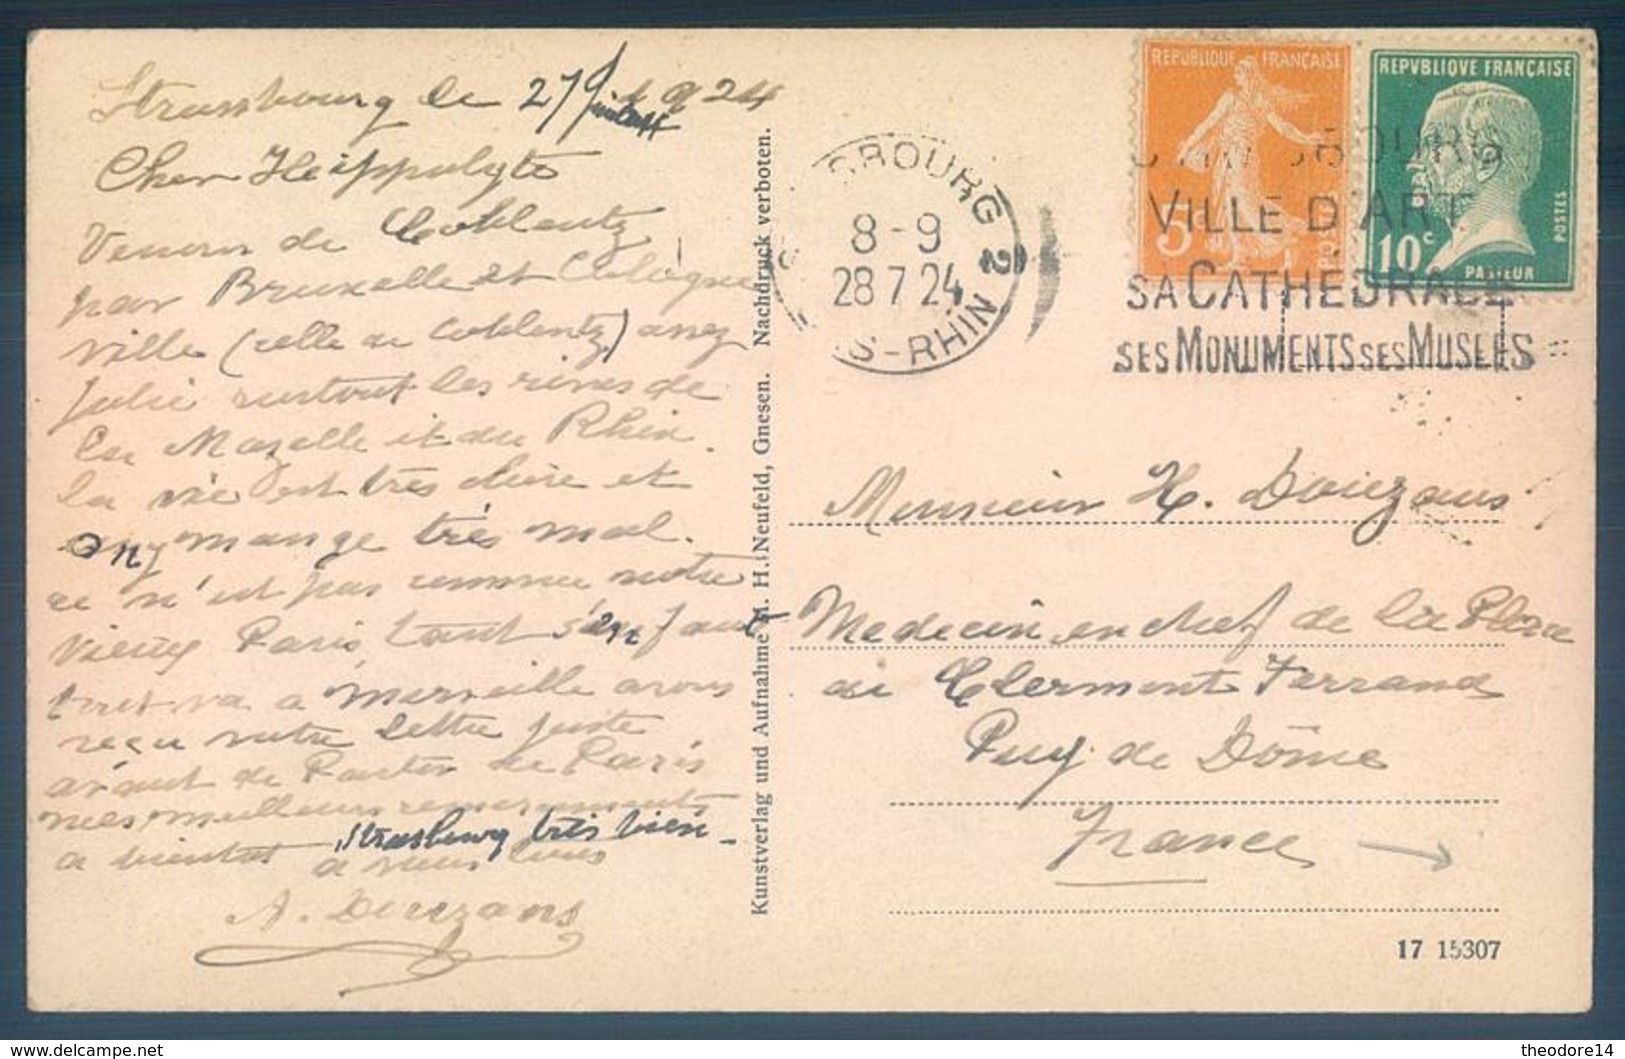 Strassbourg le 27 juillet 1924
Cher Heippolyte
Venons de Coblentz
par Bruxelle et Cologne
ville (celle de Coblentz) assez
jolie surtout les rives de
la Mozelle et du Rhin.
la vie est très chère et
on y mange très mal.
ce n'est pas comme notre
vieux Paris tant s'en faut
tout va à Merseille avons
reçu votre lettre juste
avant de Partir de Paris
mes meilleurs remerciements
a bientot Strasbourg très bien -
a vous tous
A. Douezans
Kunstverlag und Aufnahme M. H. Neufeld, Gnesen. Nachdruck verboten.
SBOURG 2
8 - 9
28 7 24
S-RHIN
REPUBLIQUE FRANÇAISE
5c
REPVBLIQVE FRANÇAISE
10c
POSTES
PASTEUR
VILLE D'ART
SA CATHEDRALE
SES MONUMENTS SES MUSEES
Monsieur H. Douezans
Medecin en chef de la Place
de Clermont Ferrand
Puy de Dôme
France
17 15307
delcampe.net
theodore14